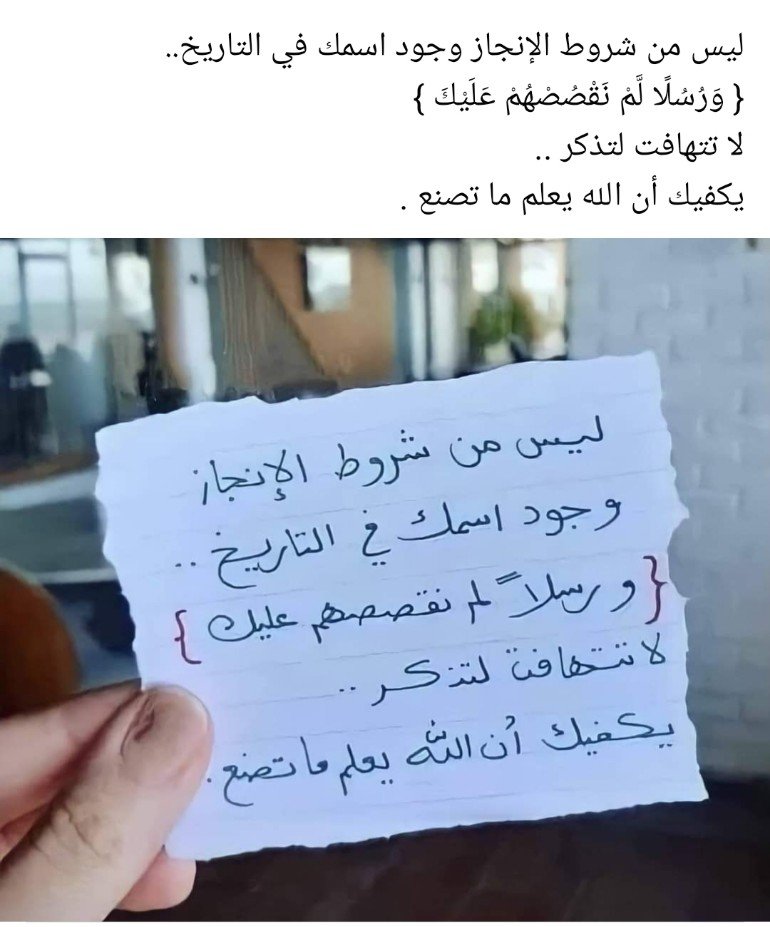 ليس من شروط الإنجاز وجود اسمك في التاريخ..
{ وَرُسُلًا لَّمْ نَقْصُصْهُمْ عَلَيْكَ }
لا تتهافت لتذكر ..
يكفيك أن الله يعلم ما تصنع .
ليس من شروط الإنجاز
وجود اسمك في التاريخ ..
{ ورسلاً لم نقصصهم عليك }
لا تتهافت لتذكر ..
يكفيك أن الله يعلم ما تصنع .